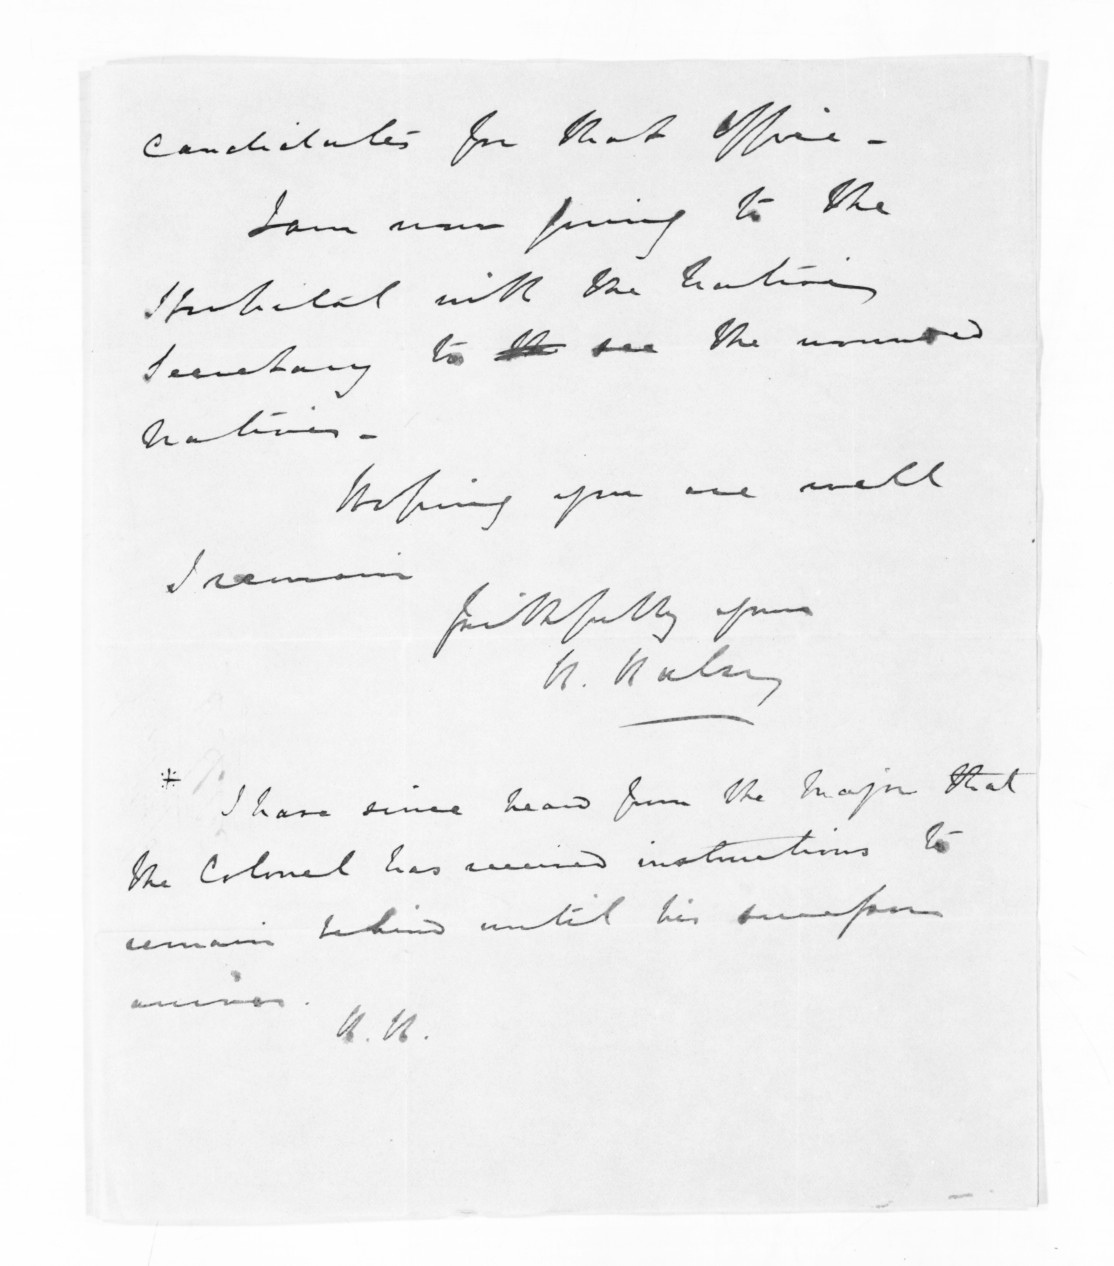 candidates for that office -
I am now going to the
Hospital with the Native
Secretary to see the wounded
natives -
Hoping you are well
I remain
Faithfully yours
H. Halse
* I have since heard from the Major that
the Colonel has received instructions to
remain behind until his successor
arrives.
H. H.